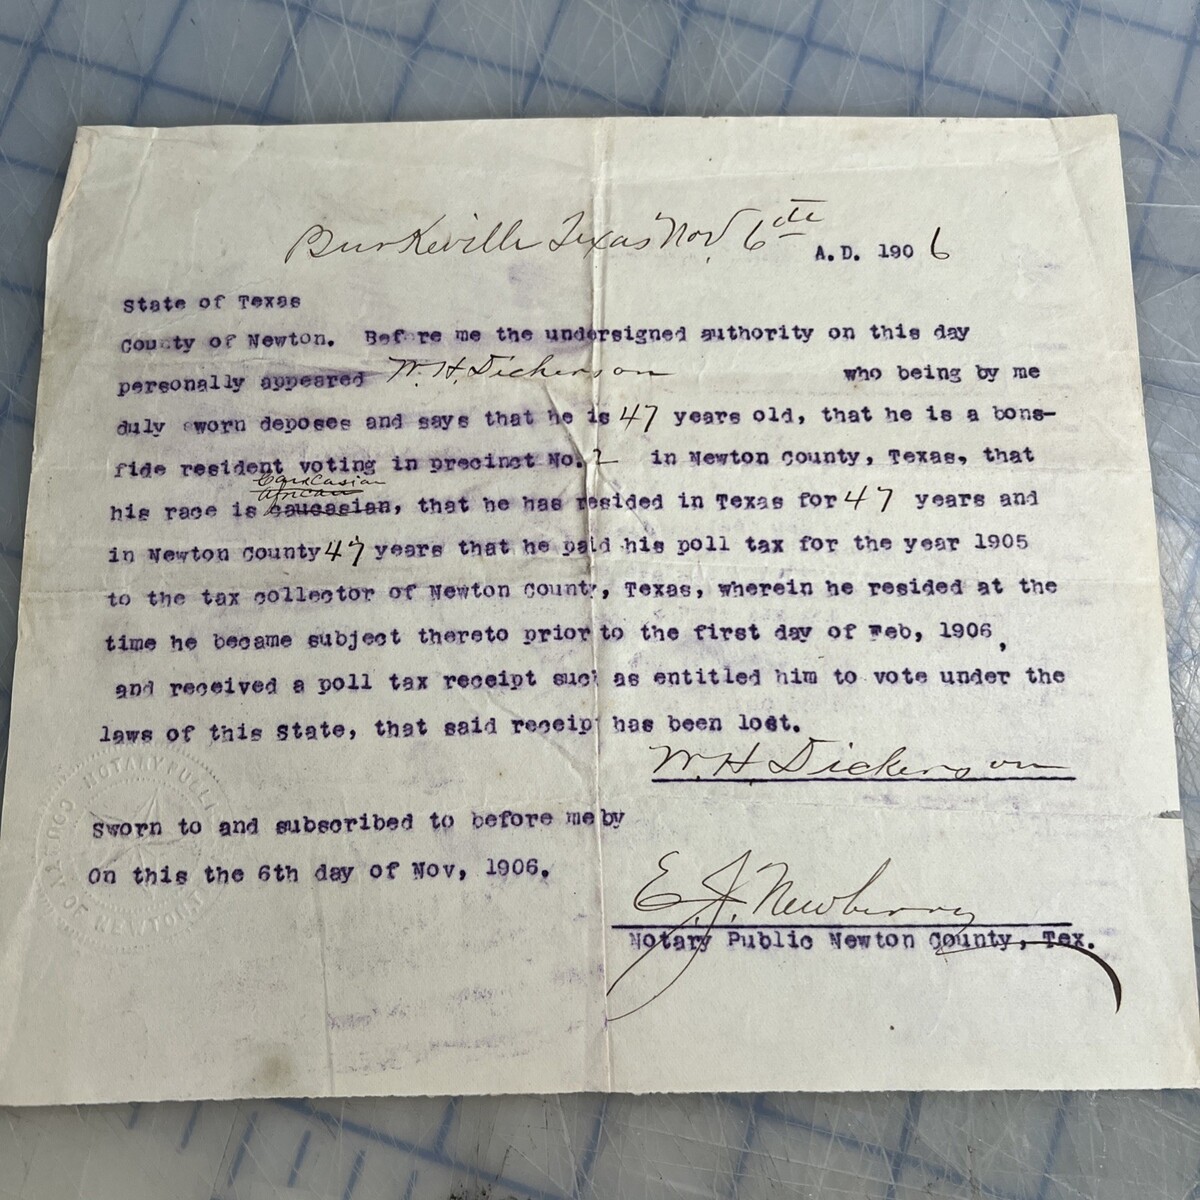 Burkeville Texas Nov. 6th A.D. 1906
State of Texas
County of Newton. Before me the undersigned authority on this day
personally appeared W. H. Dickerson who being by me
duly sworn deposes and says that he is 47 years old, that he is a bons-
fide resident voting in precinct No. 2 in Newton County, Texas, that
Caucasian
african
his race is caucasian, that he has resided in Texas for 47 years and
in Newton County 47 years that he paid his poll tax for the year 1905
to the tax collector of Newton County, Texas, wherein he resided at the
time he became subject thereto prior to the first day of Feb, 1906,
and received a poll tax receipt such as entitled him to vote under the
laws of this State, that said receipt has been lost.
W. H. Dickerson
Sworn to and subscribed to before me by
On this the 6th day of Nov, 1906.
E. J. Newberry
Notary Public Newton County, Tex.
NOTARY PUBLIC
COUNTY OF NEWTON